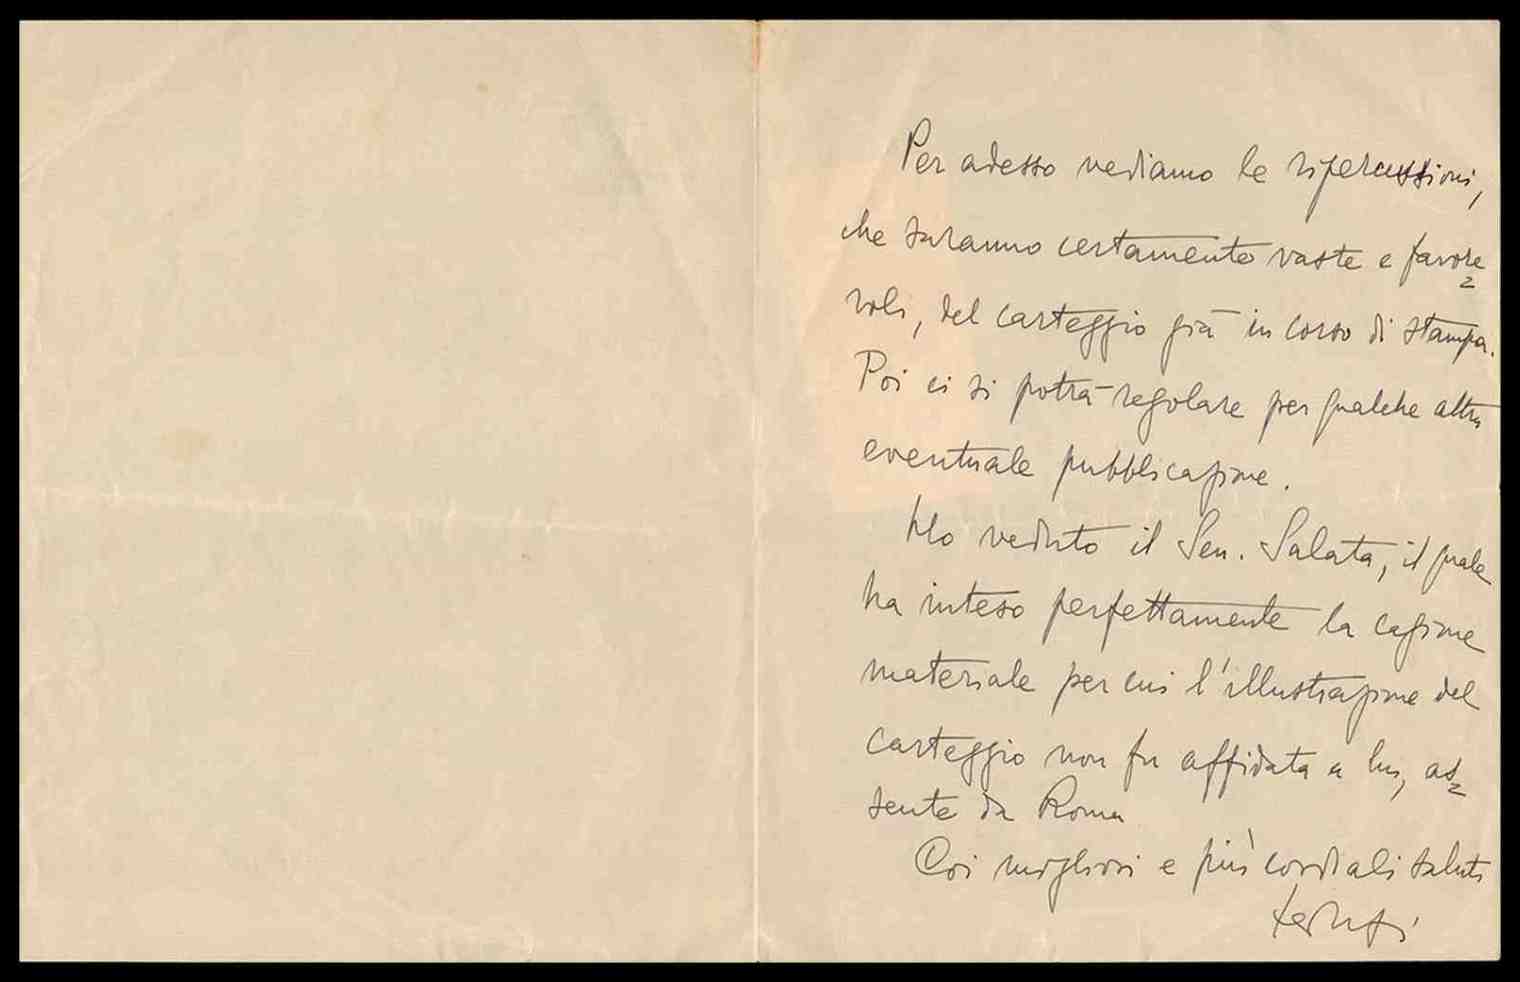 Per adesso vediamo le ripercussioni,
che saranno certamente vaste e favore=
voli, del carteggio già in corso di stampa.
Poi ci si potrà regolare per qualche altra
eventuale pubblicazione.
Ho veduto il Sen. Salata, il quale
ha inteso perfettamente la cagione
materiale per cui l'illustrazione del
carteggio non fu affidata a lui, as=
sente da Roma
Coi migliori e più cordiali saluti